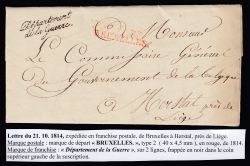 Département
de la Guerre.
BRUXELLES.
Monsieur
Le Commissaire Général
du Gouvernement de la Belgique
à Herstal près de
Liège
Lettre du 21. 10. 1814, expédiée en franchise postale, de Bruxelles à Herstal, près de Liège.
Marque postale : marque de départ « BRUXELLES. », type 2 ( 40 x 4,5 mm ), en rouge, de 1814.
Marque de franchise : « Département de la Guerre », sur 2 lignes, frappée en noir dans le coin
supérieur gauche de la suscription.